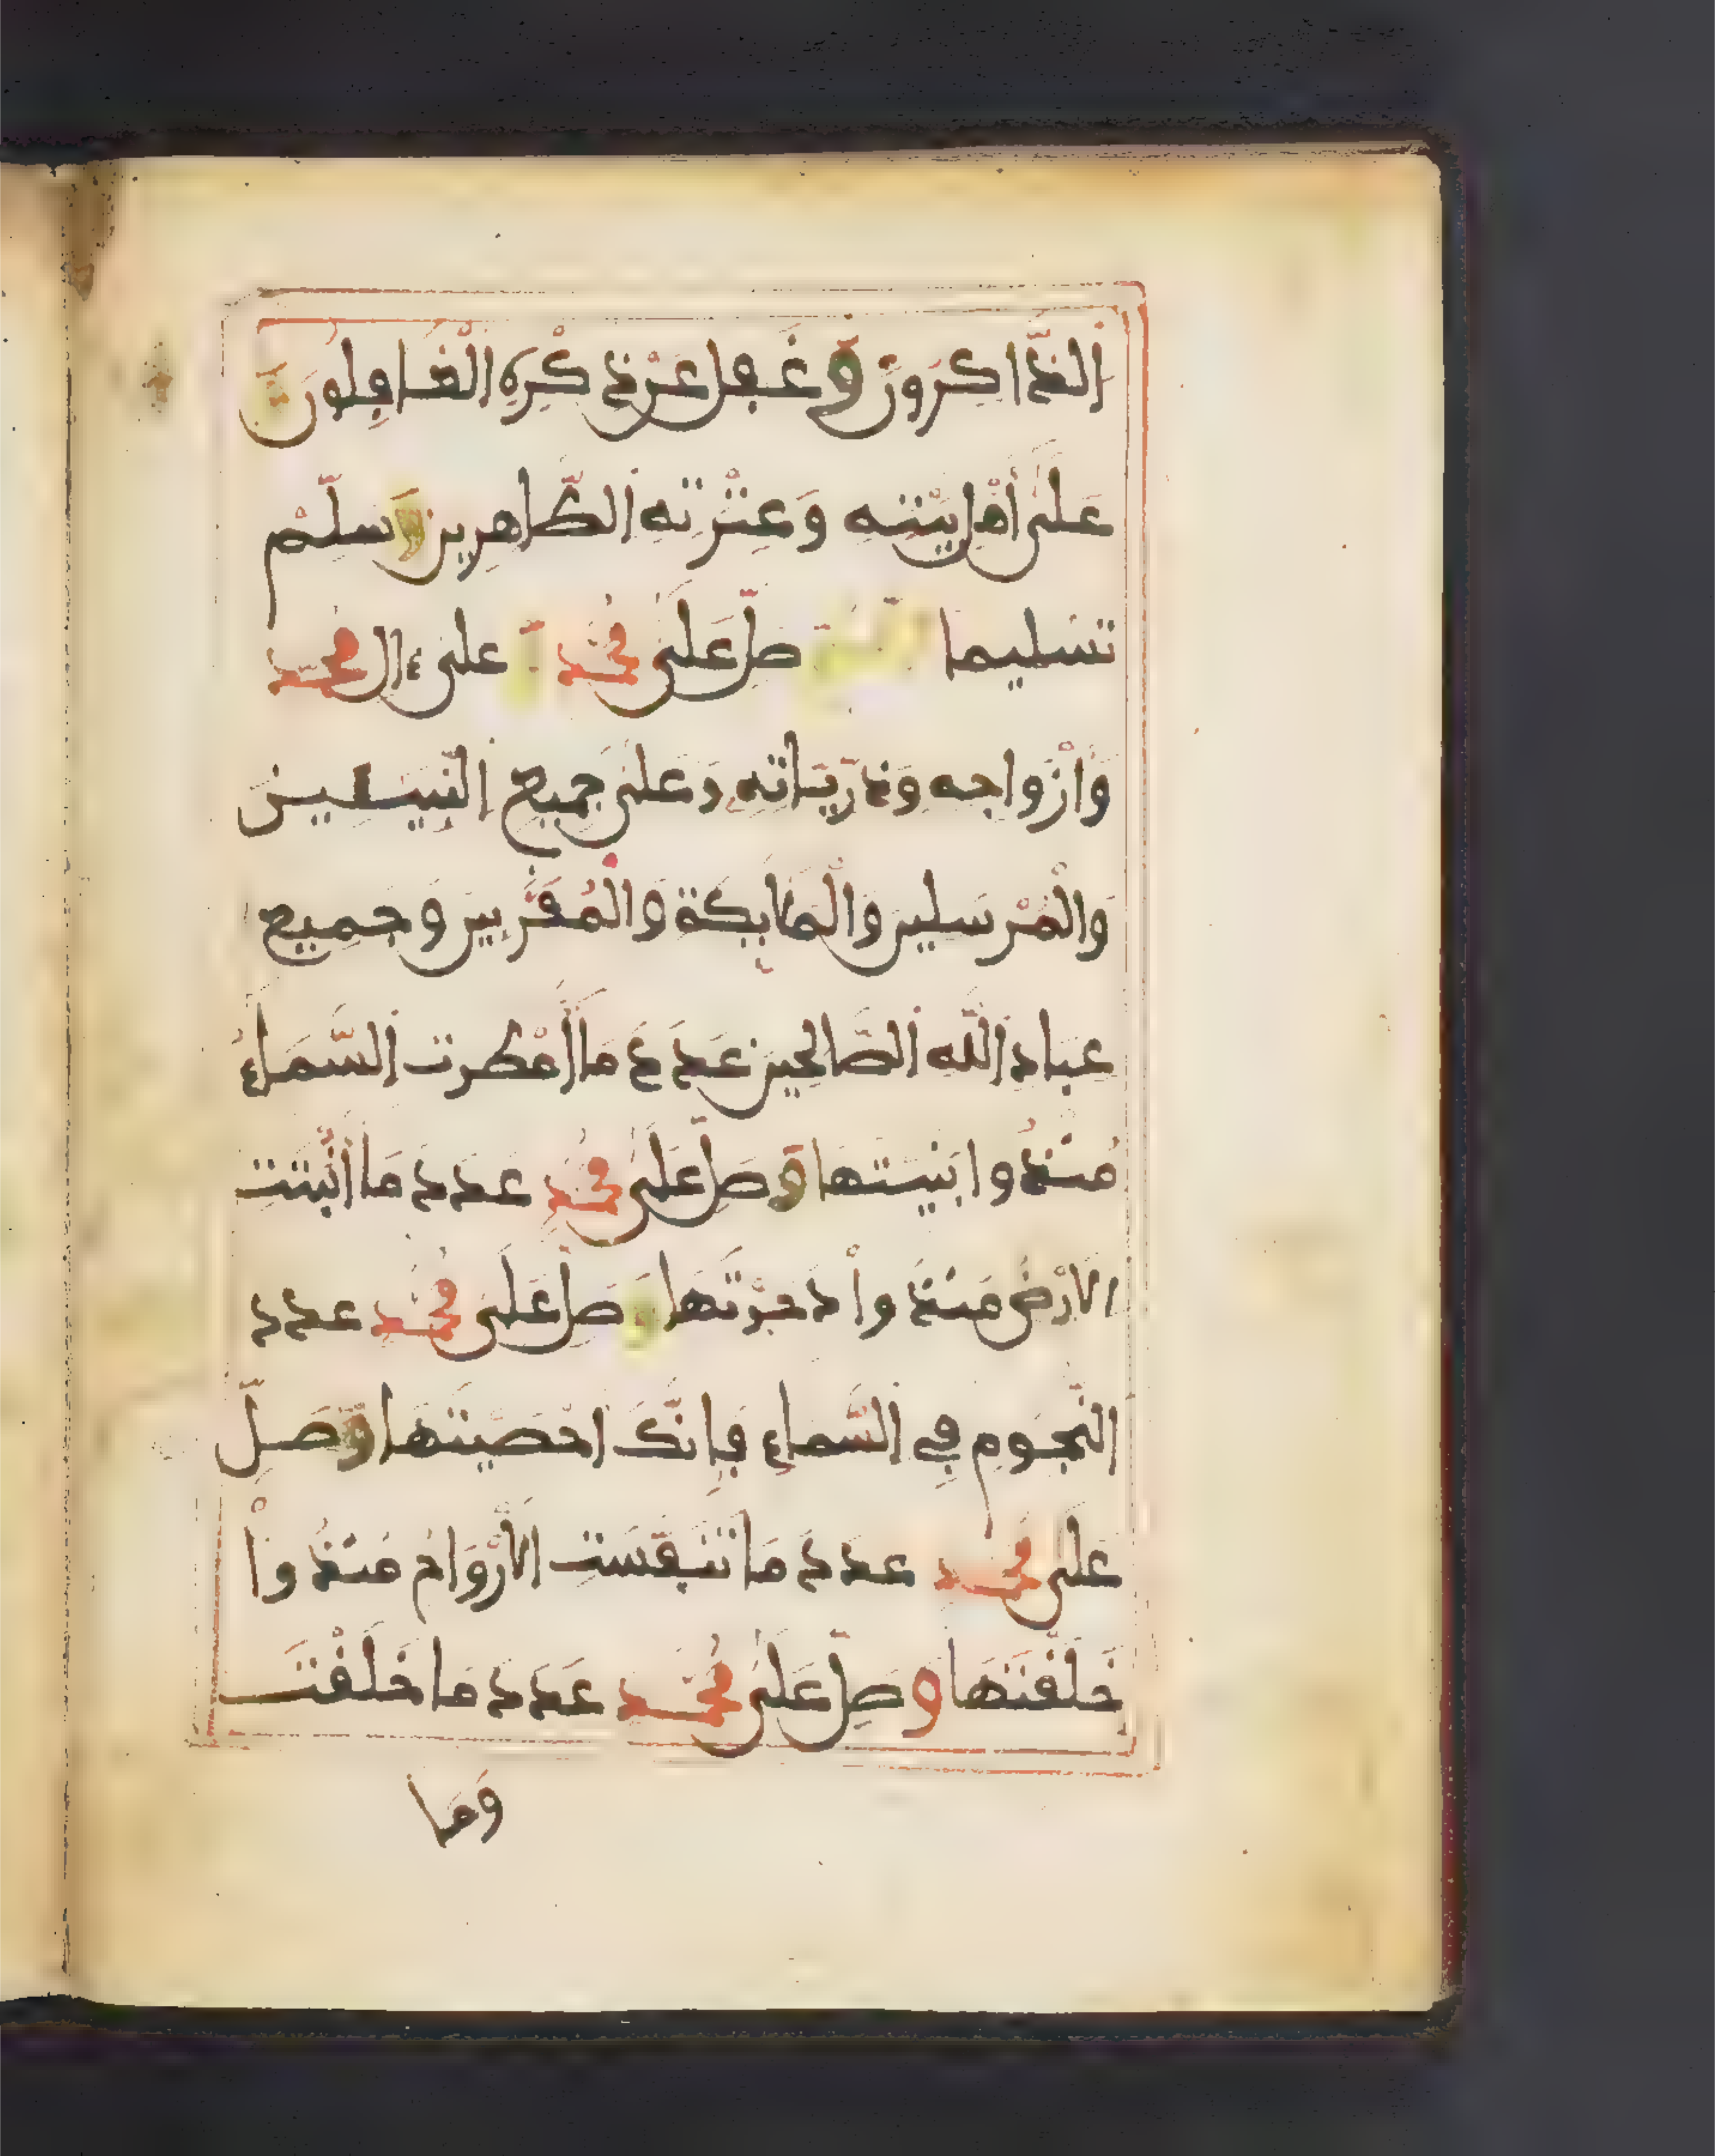 ألذَّاكرونَ وَغَفل عَنْ ذِكْرِهِ الْغَافِلُونَ وَ
عَلَىٰ أَهْلِ بَيْتِه وَعِتْرَتِهِ ألطَّاهِرِين وَسلّم
تسليما اللهم صَلّ عَلَى محمّد وَ على ءال محمّد
وَأَزْوَاجِه وَذرِّيَّاتِه وَعَلى جميع النَّبِيئِين
وَالْمُرْسَلين وَالْمَلَائِكَة وَالْمُقَرَّبِين وَجَميع
عبَاد اللَّه الصَّالحِين عَدَدَ مَا أَمْطرت السَّمَاءُ
مُنْذُ وابَنيتهَا وَصَلّ عَلَى محمّد عدد مَا أَنْبَتَت
الَارْضُ مُنْذُ وأ دَحَوْتَهَا وَصَلّ عَلَى مُحمّد عدد
النّجُوم فِي السَّمَاءِ فَإِنَّكَ احْصَيْتَهَا وَصَلّ
عَلى مُحمّد عدد مَا تَنَفَّسَت الَارْوَاحُ مُنْذُ وأ
خَلَقْتَهَا وَصَلّ عَلَى مُحَمَّد عَدَدَ مَا خَلَقْتَ
وَمَا